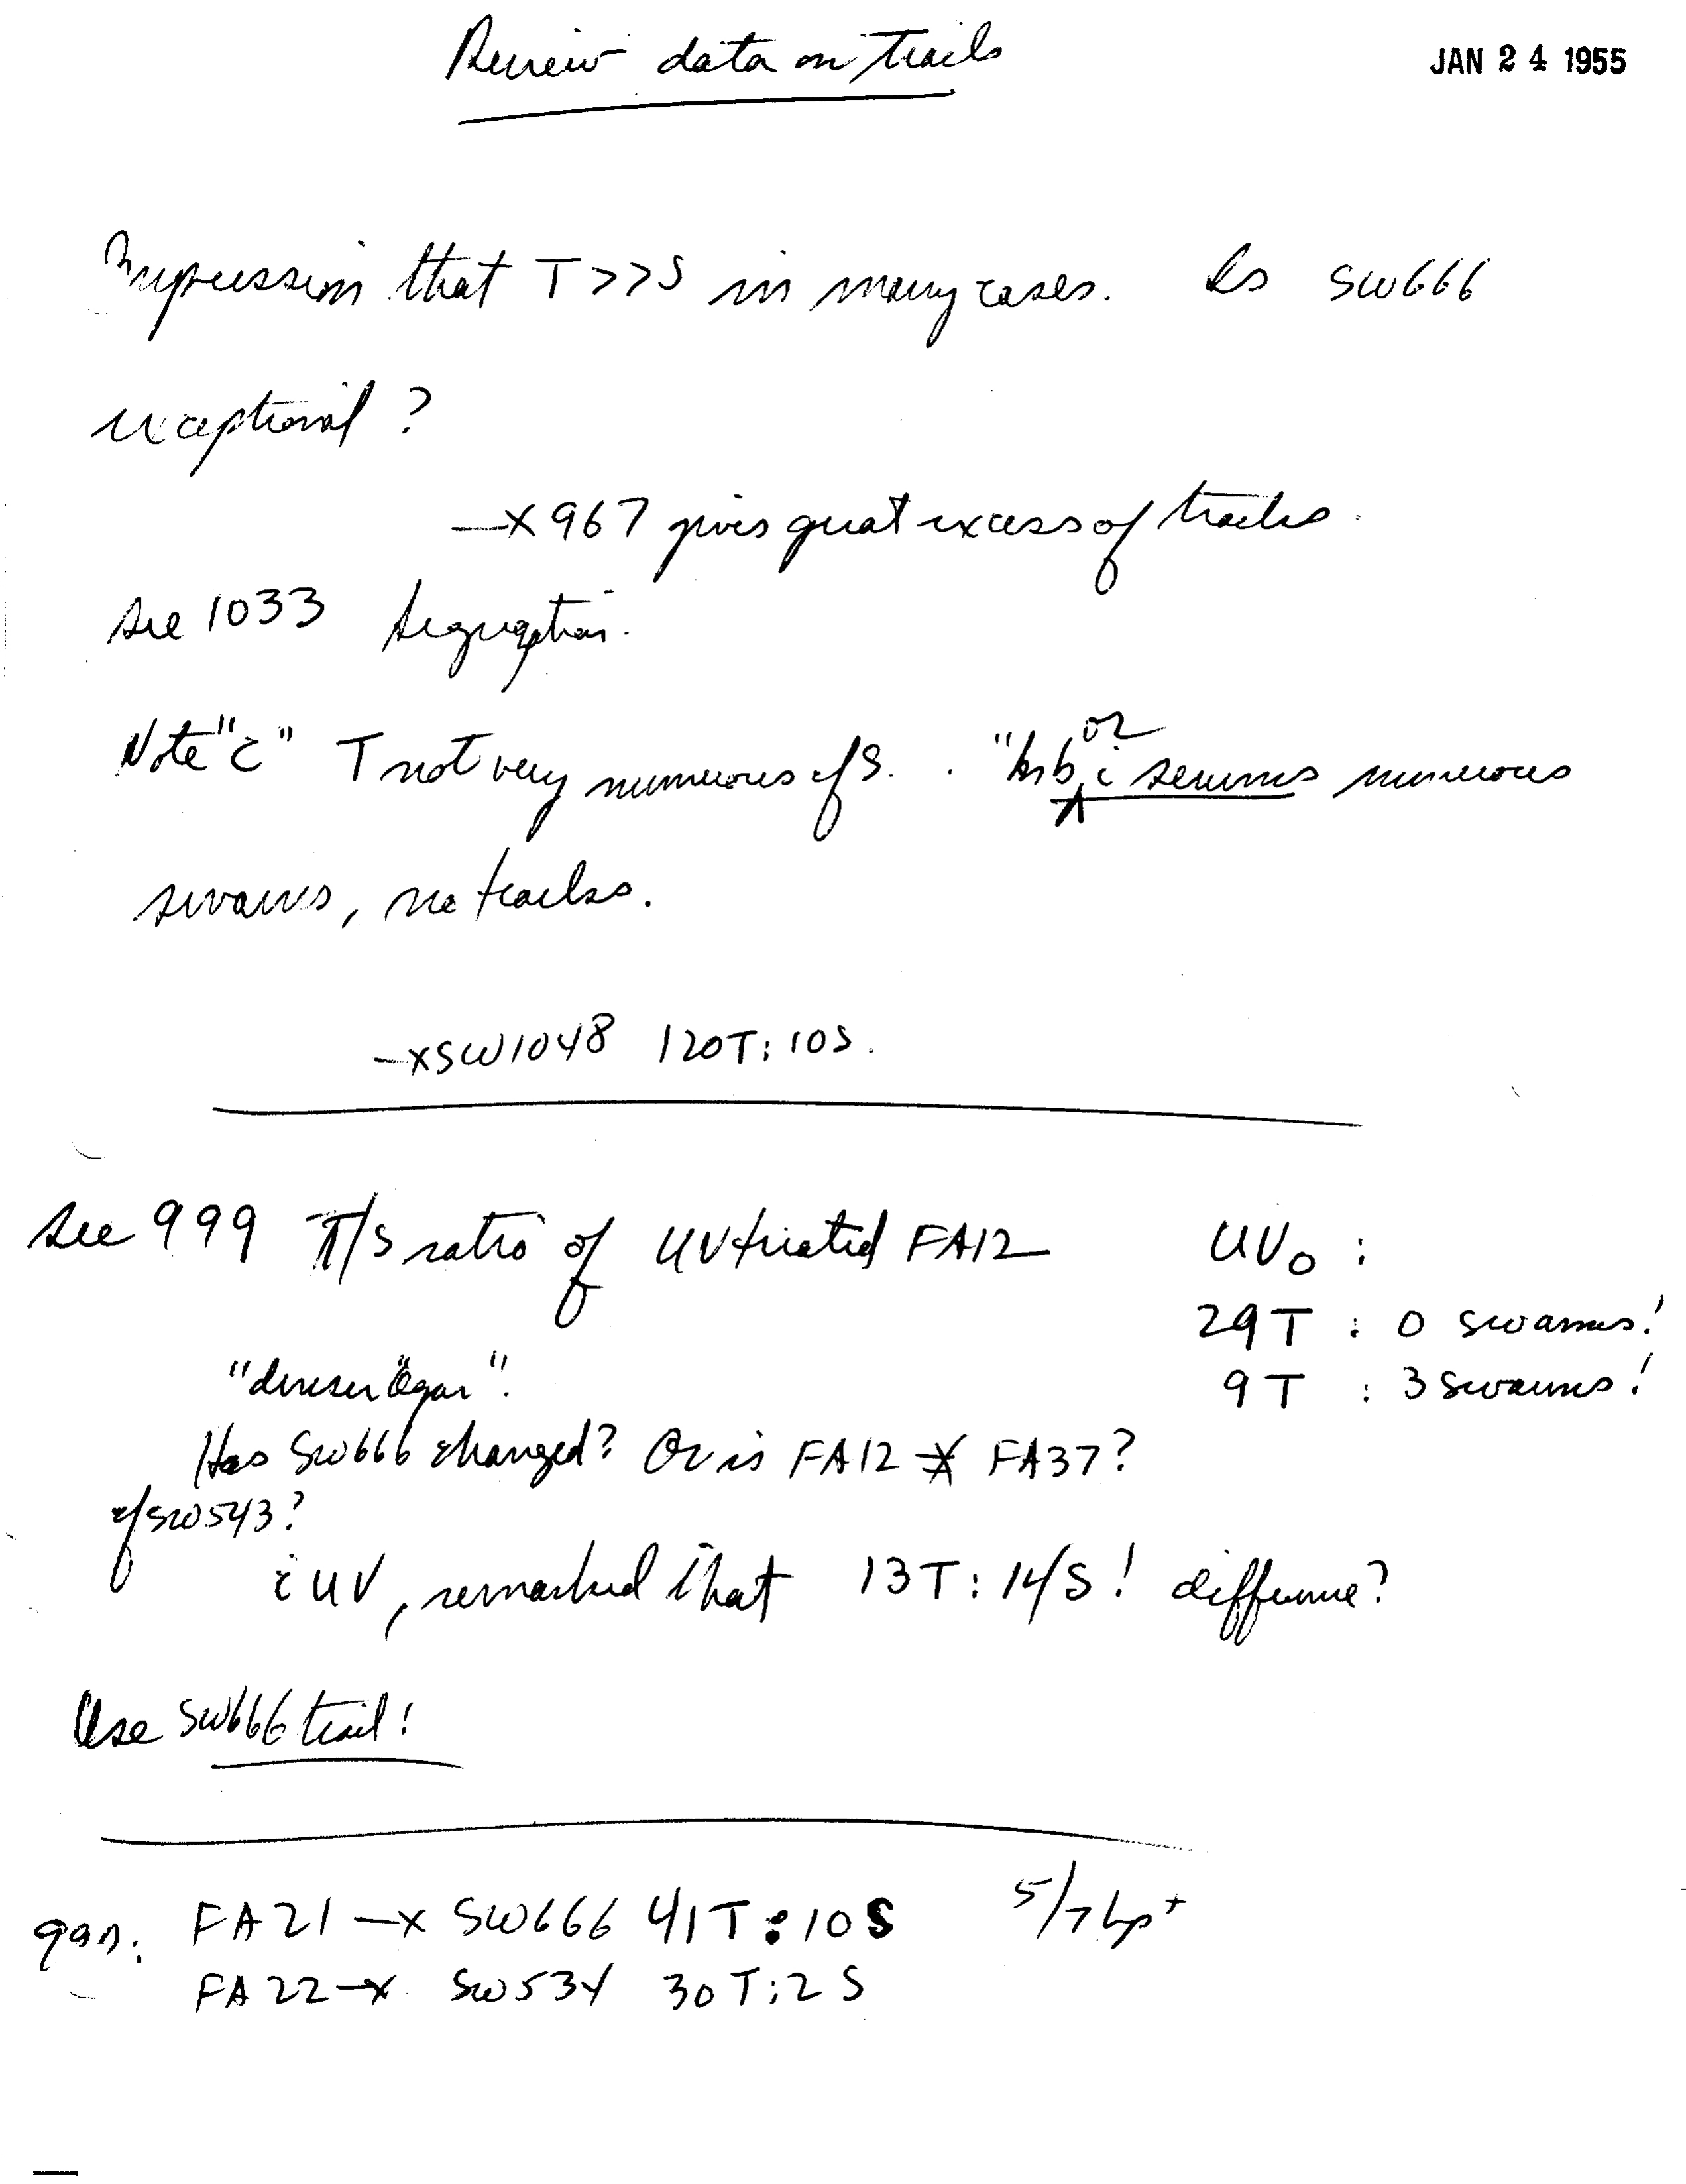 Review data on trails
JAN 24 1955
Impression that T >> S in many cases. Is SW666
exceptional?
—x 967 gives great excess of trails.
See 1033 Segregation.
Note "c" T not very numerous cf S. . "In b, or i serums numerous
swarms, no trails.
—x SW1048 120T: 10S.
See 999 T/S ratio of UV treated FA12 UV0 :
29 T : 0 swarms!
"denser agar". 9 T : 3 swarms!
Has SW666 changed? Or is FA12 ≠ FA37?
cf SW543?
c UV, remarked that 13T: 14S! difference?
Use SW666 trail!
990: FA21 —x SW666 41T: 10S 5/7 Lp+
FA22 —x SW534 30T: 2S